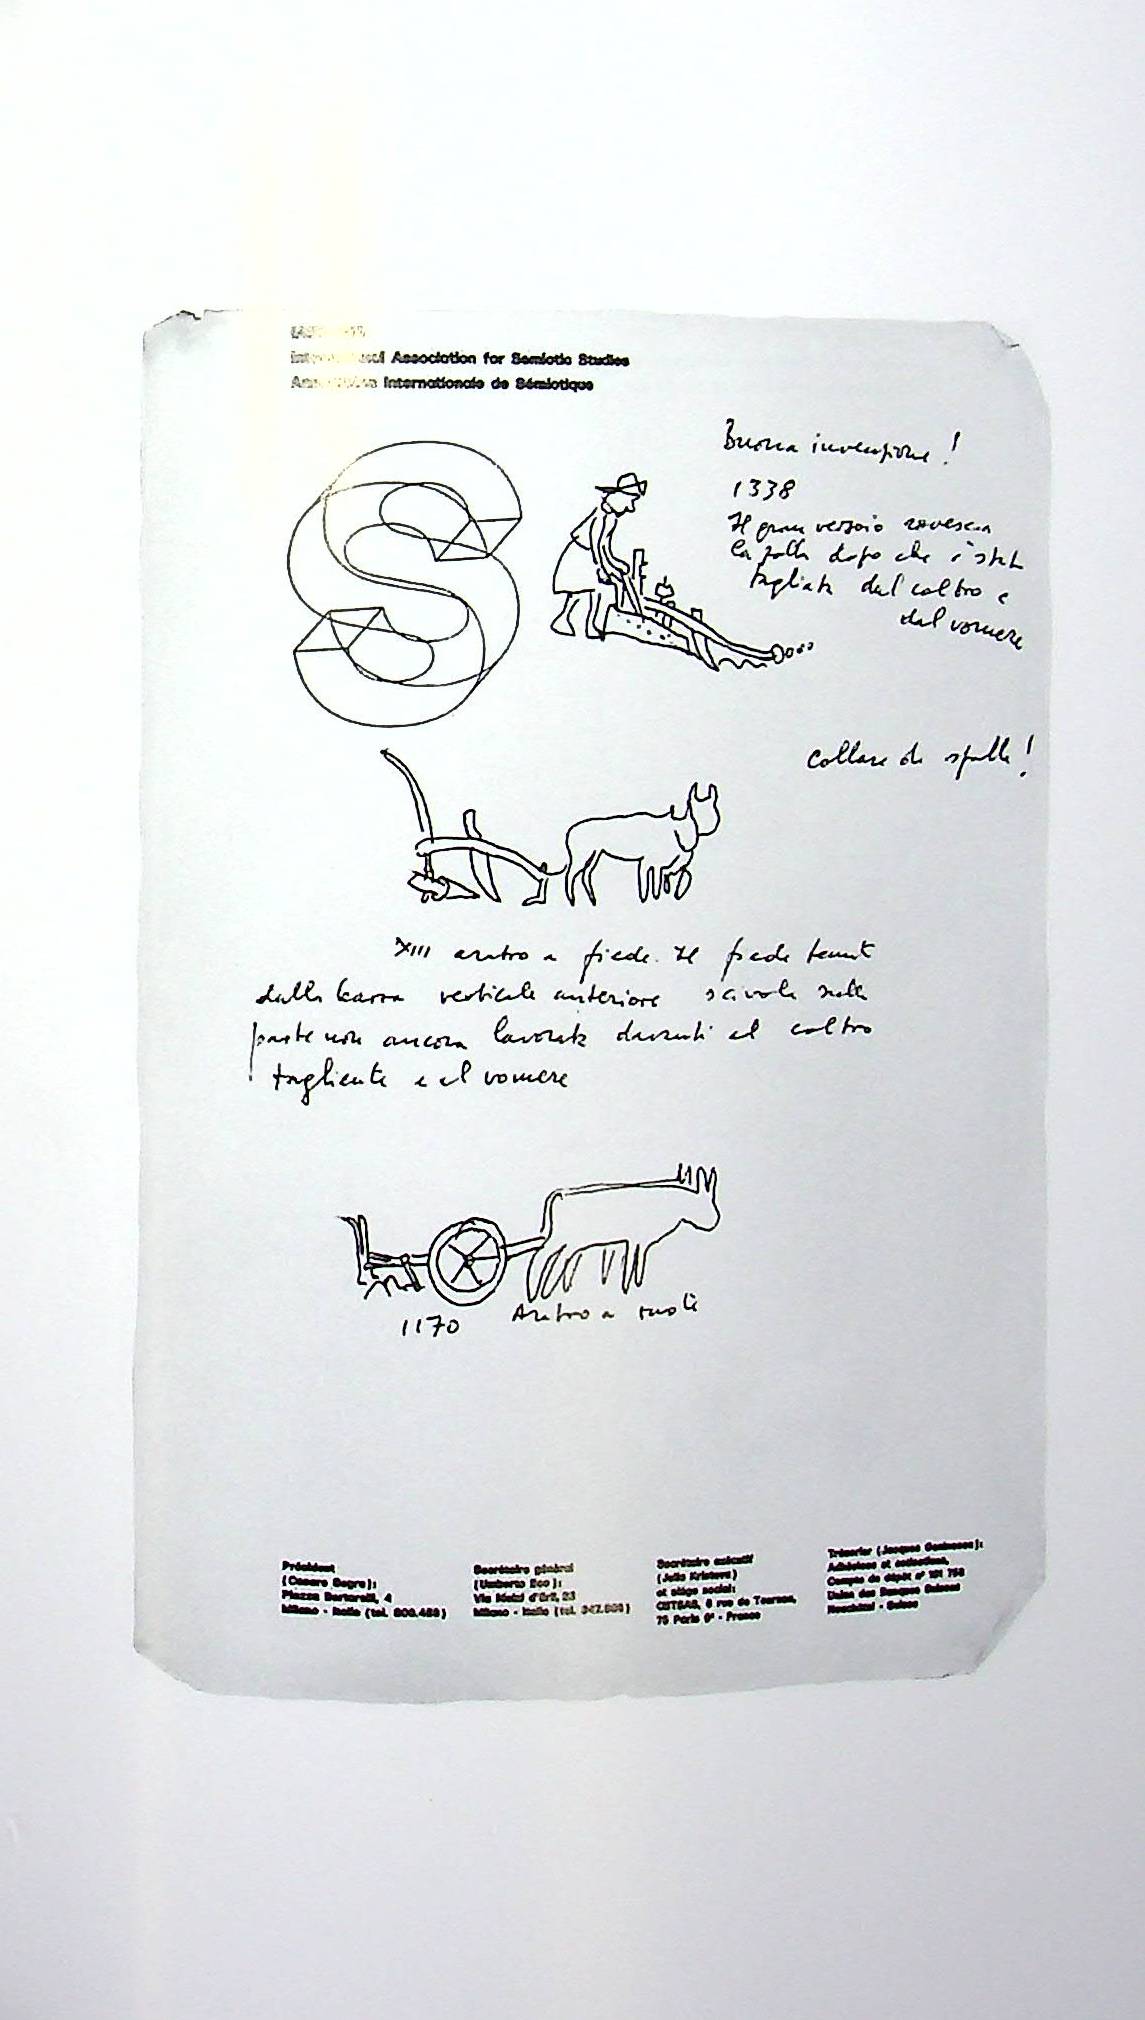 International Association for Semiotic Studies
Association Internationale de Sémiotique
Buona invenzione!
1338
Il gran versoio rovescia
la zolla dopo che è stata
tagliata dal coltro e
dal vomere
Collare da spalla!
XIII aratro a piede. Il piede tenuto
dalla barra verticale anteriore scivola sulla
parte non ancora lavorata davanti al coltro
tagliente e al vomere
1170 Aratro a ruote
Président
(Cesare Segre):
Piazza Bertarelli, 4
Milano - Italie (tel.
Secrétaire général
(Umberto Eco):
Via
Milano - Italie (tel.
Secrétaire exécutif
(Julia Kristeva)
et siège social:
rue de Tournon,
75 Paris 6e - France
Trésorier (Jacques Geninasca):
Adhésions et cotisations,
Compte de dépôt n°
Union des Banques Suisses
Neuchâtel - Suisse